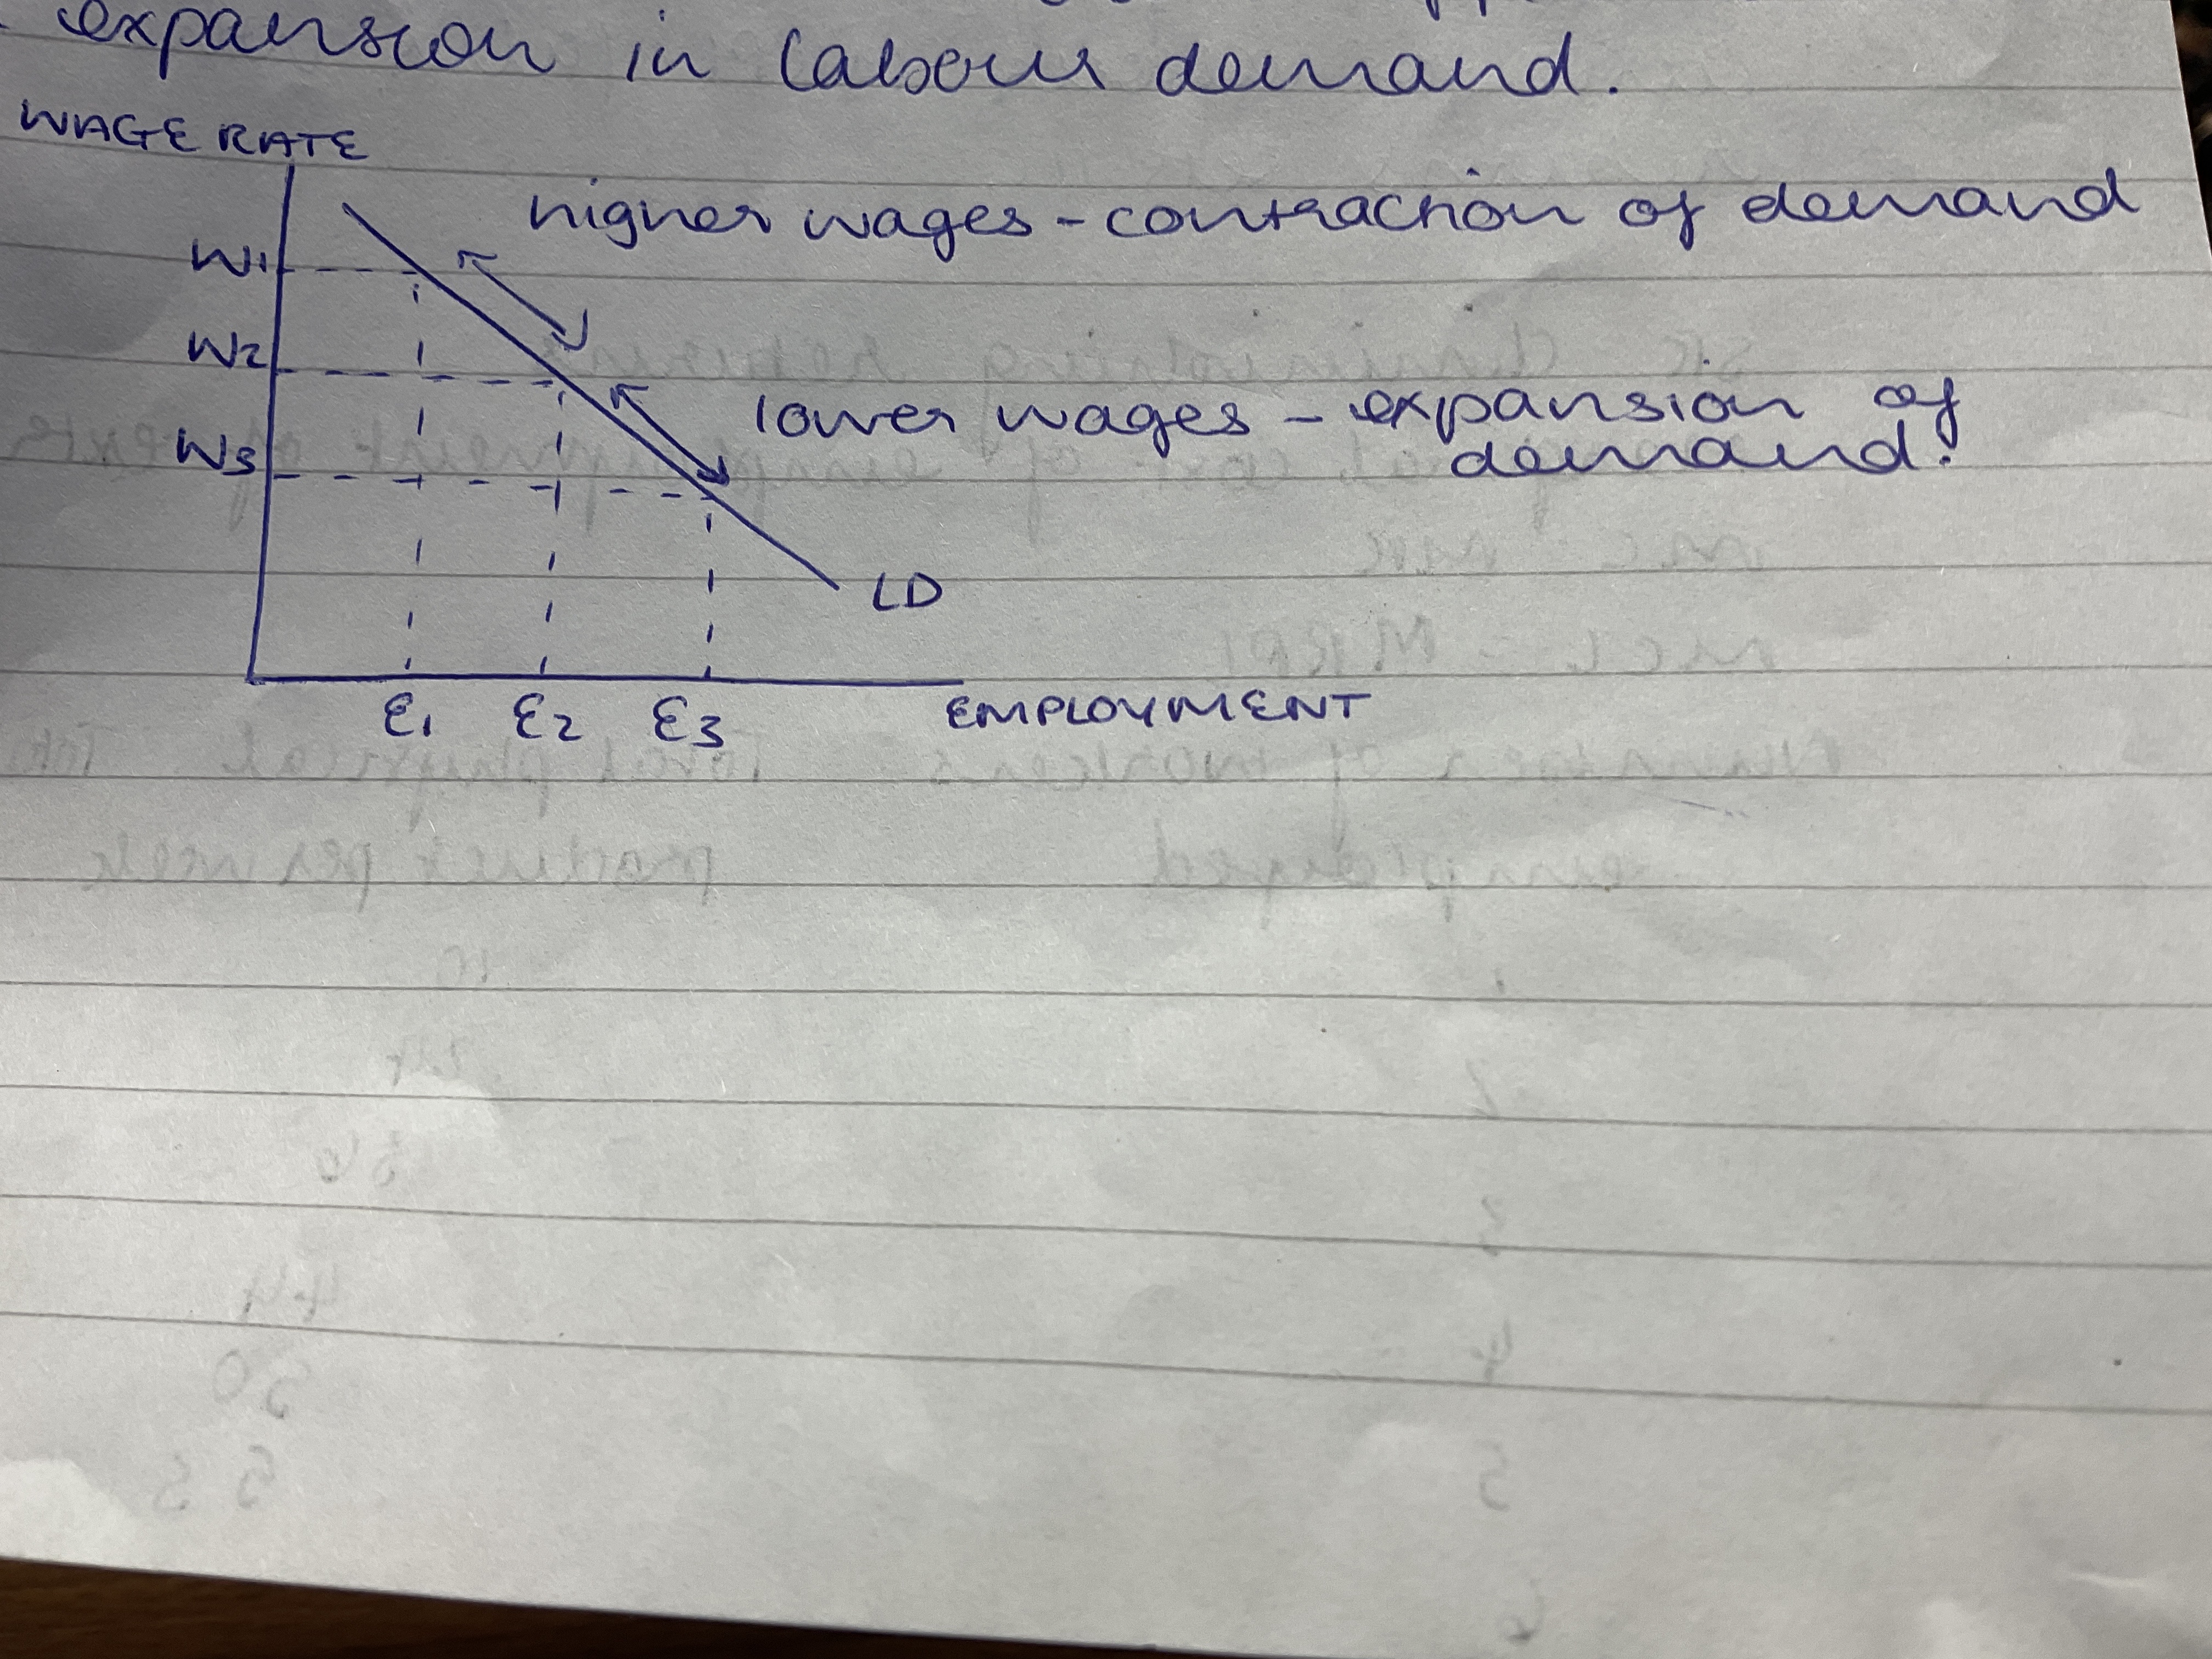 expansion in labour demand.
WAGE RATE
higher wages - contraction of demand
W1
W2
lower wages - expansion of
demand.
W3
LD
E1 E2 E3 EMPLOYMENT